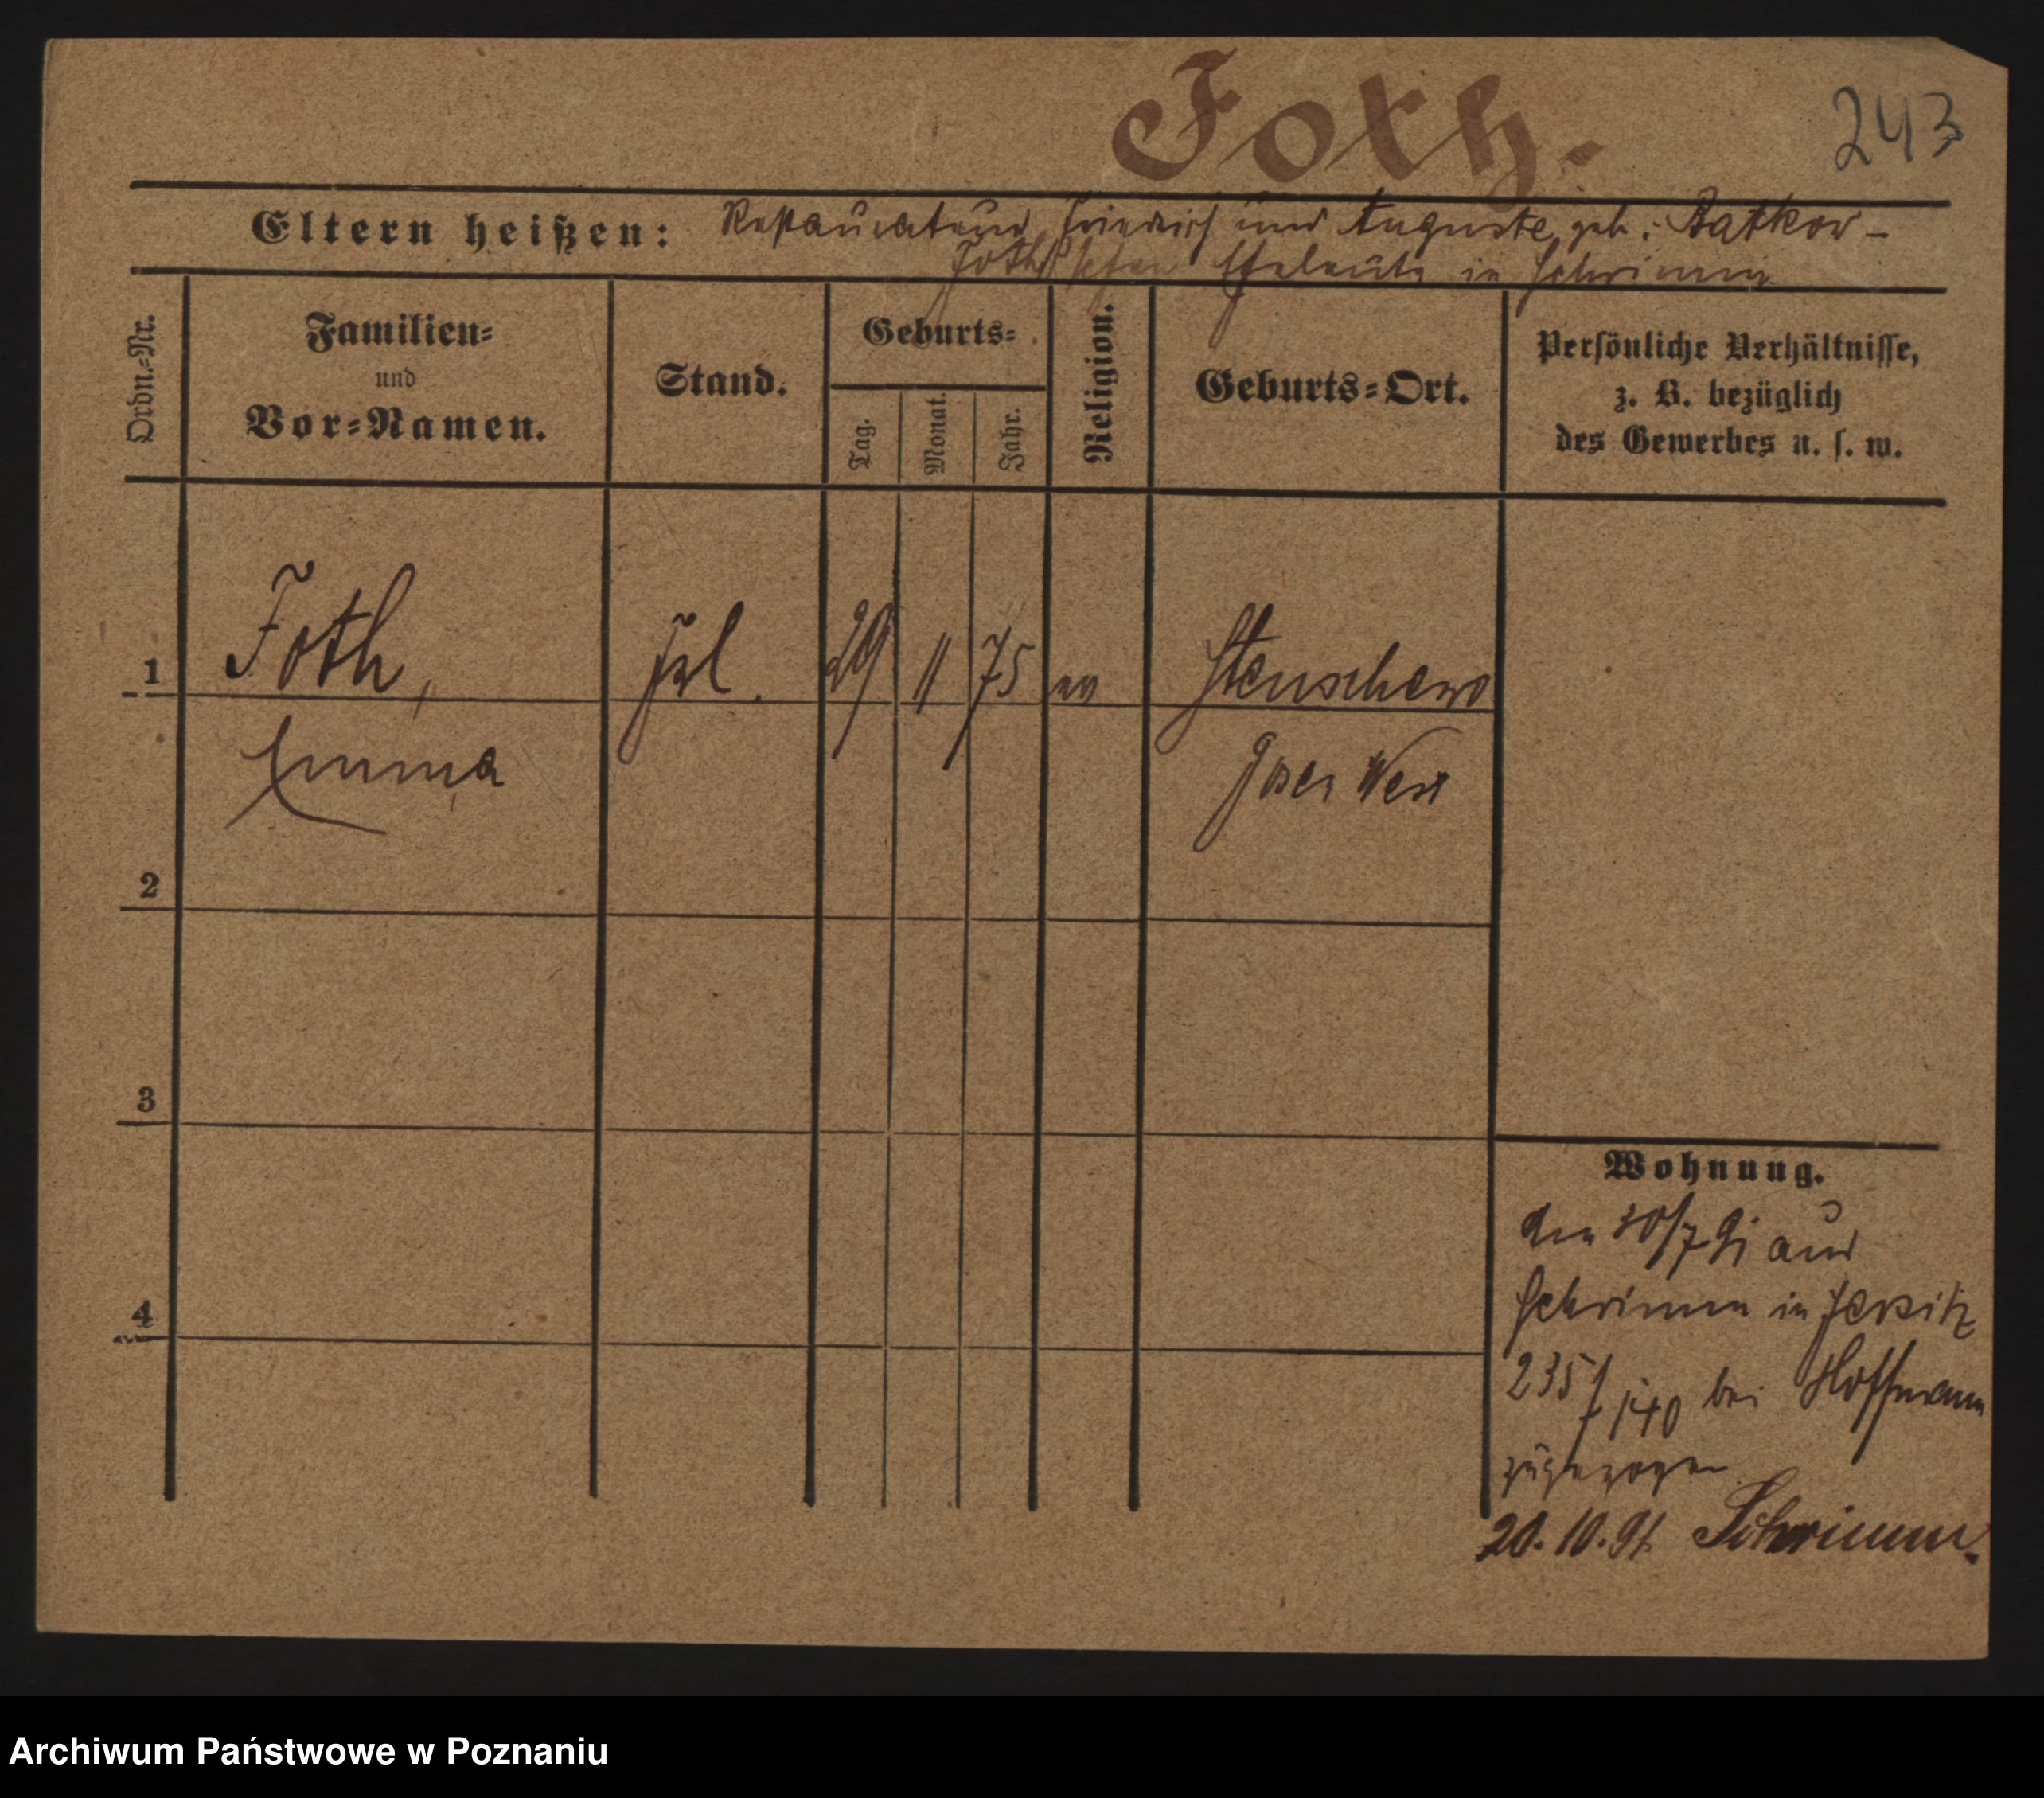 Foth.
243
Eltern heißen: Restaurateur Friedrich und Auguste, geb. Batkow-
Foth'schen Eheleute in Schrimm
Ordn.-Nr.
Familien-
und
Vor-Namen.
Stand.
Geburts-
Tag.
Monat.
Jahr.
Religion.
Geburts-Ort.
Persönliche Verhältnisse,
z. B. bezüglich
des Gewerbes u. s. w.
1 Foth, Frl. 29 11 75 ev Stenschewo
Emma Posen West
2
3
4
Wohnung.
den 10/7 91 aus
Schrimm in Jersitz
235/140 bei Hoffmann
zugezogen
20.10.91. Schrimm.
Archiwum Państwowe w Poznaniu